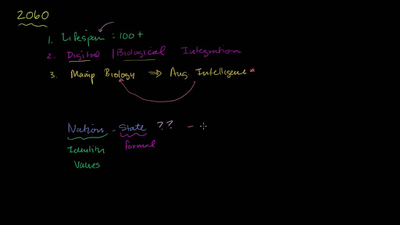 2060
1. Lifespan : 100+
2. Digital / Biological Integration
3. Manip Biology ⇒ Aug. Intelligence
Nation - State ?? -
Identity formal
Values